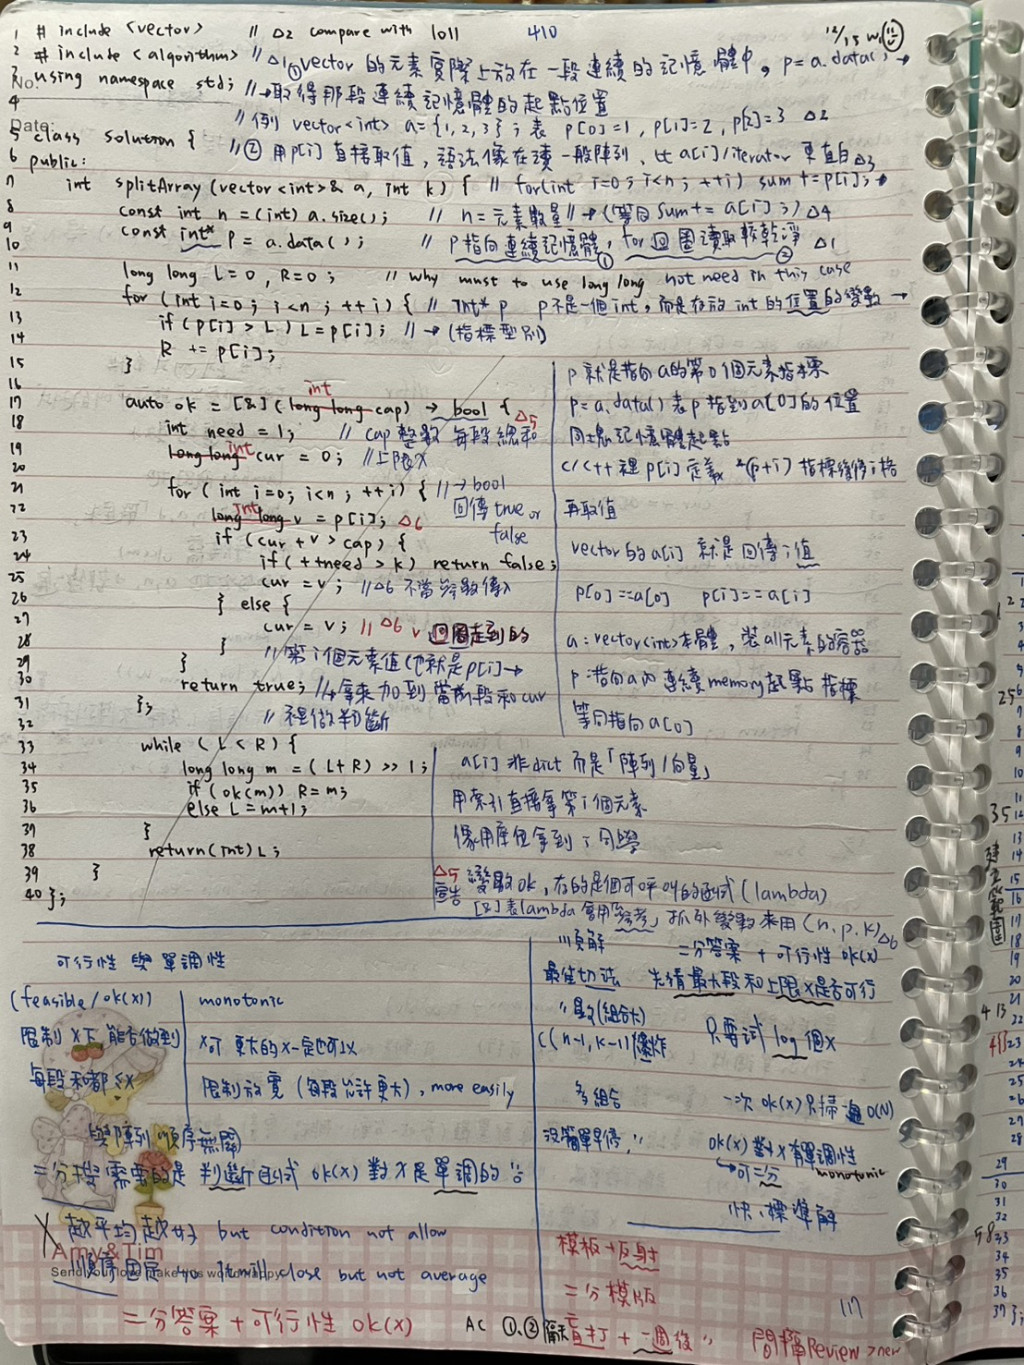 1 # include <vector> // △2 compare with 1011 410 12/15 W
2 # include <algorithm> // △1 ① vector 的元素實際上放在一段連續的記憶體中, p = a.data(); →
3 using namespace std; // → 取得那段連續記憶體的起點位置
No.
4 // 例 vector<int> a = {1, 2, 3}; 表 p[0]=1, p[1]=2, p[2]=3 △2
Date:
5 class Solution { // ② 用p[i] 直接取值, 語法像在讀一般陣列、比 a[i]/iterator 更直白 △3
6 public:
7 int splitArray (vector<int>& a, int k) { // for(int i=0; i<n; ++i) sum += p[i]; →
8 const int n = (int) a.size(); // n = 元素數量 // → (等同 sum += a[i];) △4
9 const int* p = a.data(); // p指向連續記憶體①, for 回圈讀取較乾淨② △1
10
11 long long L = 0, R = 0; // why must to use long long not need in this case
12 for (int i=0; i<n; ++i) { // int* p p不是一個int, 而是存放 int 的位置的變數 →
13 if (p[i] > L) L = p[i]; // → (指標型別)
14 R += p[i];
15 }
16 int
17 auto ok = [&] (long long cap) → bool { △5
18 int need = 1; // cap 整數 每段總和
19 long long int cur = 0; // 上限x
20
21 for (int i=0; i<n; ++i) { // → bool
22 long long int v = p[i]; △6 回傳true or
23 if (cur + v > cap) { false
24 if (++need > k) return false;
25 cur = v; // △6 不當參數傳入
26 } else {
27 cur = v; // △6 v 回圈走到的
28 }
29 } // 第 i 個元素值(也就是p[i] →
30 return true; // → 拿來加到當前段和 cur
31 }; // 裡做判斷
32
33 while (L < R) {
34 long long m = (L+R) >> 1;
35 if (ok(m)) R = m;
36 else L = m+1;
37 }
38 return (int) L;
39 }
40 };
p 就是指向 a的第 0 個元素指標
p = a.data() 表 p 指到 a[0] 的位置
同塊記憶體起點
C/C++ 裡 p[i] 定義 *(p+i) 指標後移 i 格
再取值
vector 的 a[i] 就是回傳 i 值
p[0] == a[0] p[i] == a[i]
a : vector(int) 本體, 裝 all 元素的容器
p : 指向 a 內 連續 memory 起點 指標
等同指向 a[0]
a[i] 非dict 而是「陣列/向量」
用索引直接拿第 i 個元素
像用座位拿到 i 同學
△5 變數 ok, 存的是個可呼叫的函式 (lambda)
宣告 [&] 表lambda 會用「參考」抓外變數來用 (n, p, k) △6
可行性 與 單調性
(feasible / ok(x)) monotonic
限制 x 下, 能否做到 x可 更大的x一定也可以
每段和都 ≤x 限制放寬 (每段允許更大), more easily
與陣列順序無關
二分搜需要的是 判斷函式 ok(x) 對 x 是單調的
X 越平均越好 but condition not allow
Amy & Tim
順序固定 so it will close but not average
二分答案 + 可行性 ok(x)
原解 二分答案 + 可行性 ok(x)
最佳切法 先猜最大段和上限x是否可行
數(組合大)
C(n-1, k-1) 爆炸 只要試 log 個 x
多組合 一次 ok(x) 只掃一遍 O(N)
沒簡單早停 ok(x) 對 x 有單調性
→ 可二分 monotonic
快、標準解
模板+反射
二分模版
117
AC ①、② 隔天盲打 + 一週後 間隔Review > new